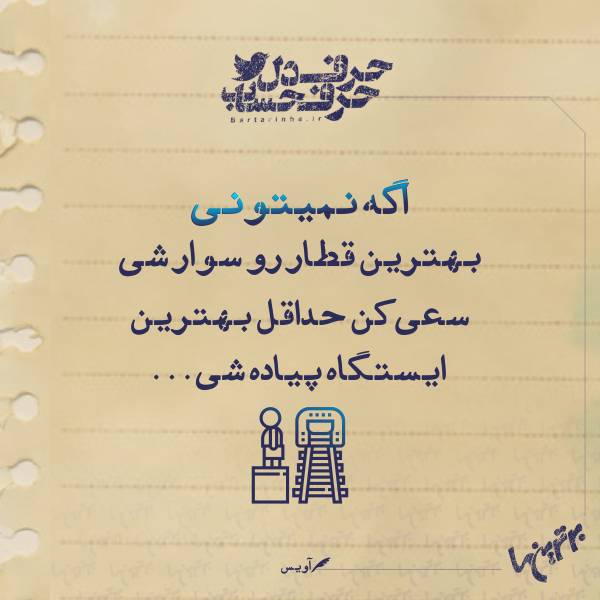 حرف دل
حرف حساب
Bartarinha.ir
اگه نمیتونی
بهترین قطار رو سوار شی
سعی کن حداقل بهترین
ایستگاه پیاده شی...
آویس
برترین‌ها